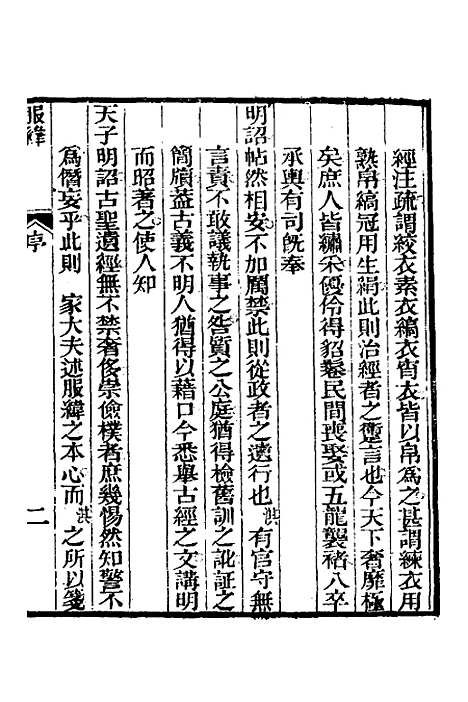 經注疏謂絞衣素衣縞衣宵衣皆以帛爲之甚謂練衣用
熟帛縞冠用生絹此則治經者之疐言也今天下奢靡極
矣庶人皆繡采優伶得貂褻民間喪娶或五龍襲褚八卒
承輿有司旣奉
明詔帖然相安不加厲禁此則從政者之遬行也淇有官守無
言責不敢議執事之咎質之公庭猶得檢舊訓之訛証之
簡牘葢古義不明人猶得以藉口今悉舉古經之文講明
而昭著之使人知
天子明詔古聖遺經無不禁奢侈崇儉樸者庶幾惕然知警不
爲僭妄乎此則 家大夫述服緯之本心而淇之所以箋
服緯 序 二